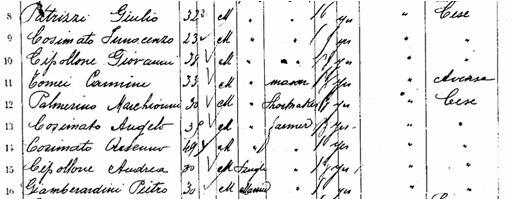 8 Petrizzi Giulio 32 M " " 16 yes " Cese
9 Cosimato Innocenzo 23 M " " yes " "
10 Cipollone Giovanni 38 M " " yes " "
11 Tomei Carmine 33 M " mason yes "
12 Palmerino Marchionni 30 M " Shoemaker yes " Cese
13 Cosimato Angelo M " farmer yes " "
14 Cosimato 49 M " " yes " "
15 Cipollone Andrea 30 M Single " yes " "
16 Giamberardini Pietro 30 M Married " yes " "